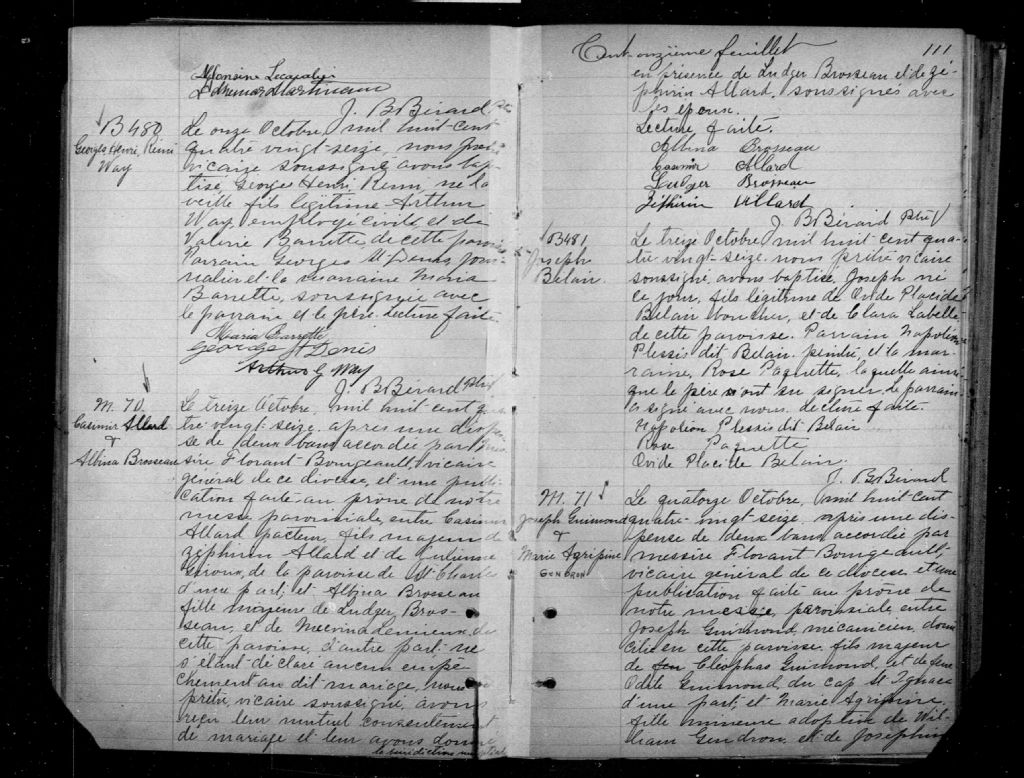 Alphonsine Lecavalier
J. B. Bérard Ptre
B 480
Georges Henri, Rémi
Way
Le onze Octobre, mil huit-cent
quatre vingt-seize, nous prêtre
vicaire soussigné avons bap-
tisé, Georges Henri, Rémi, né la
veille fils légitime Arthur
Way, employé civil, et de
Valérie Barrette, de cette paroisse
Parrain Georges St Denis, jour-
nalier et la marraine Maria
Barrette, soussignée avec
le parrain et le père. Lecture faite
Maria Barrette
George St Denis
Arthur G Way
J. B. Bérard Ptre
M. 70
Casimir Allard
+
Albina Brosseau
Le treize Octobre, mil huit-cent qua-
tre vingt-seize, après une dispen-
se de deux bans accordée par Mes-
sire Florant Bourgeault, vicaire
général de ce diocèse, et une publi-
cation faite au prône de notre
messe paroissiale, entre Casimir
Allard facteur, fils majeur de
Zéphirin Allard et de
Giroux, de la paroisse de St Charles
d'une part; et Albina Brosseau
fille mineure de Ludger Bros-
seau, et de Melvina Lemieux, de
cette paroisse, d'autre part: ne
s'étant déclaré aucun empê-
chement au dit mariage, nous
prêtre, vicaire soussigné, avons
reçu leur mutuel consentement
de mariage et leur avons donné
la bénédiction nuptiale
Cent onzième feuillet
111
en présence de Ludger Brosseau et de Zé-
phirin Allard, soussignés avec
les époux.
Lecture faite.
Albina Brosseau
Casimir Allard
Ludger Brosseau
Zéphirin Allard
J. B. Bérard Ptre
B481
Joseph
Belair.
Le treize Octobre, mil huit cent qua-
tre-vingt-seize, nous prêtre vicaire
soussigné, avons baptisé, Joseph né
ce jour, fils légitime de Ovide Placide
Belair boucher, et de Clara Labelle
de cette paroisse. Parrain Napoléon
Plessis dit Belair, peintre, et la mar-
raine, Rose Paquette, laquelle ainsi
que le père ont su signer, le parrain
a signé avec nous. Lecture faite.
Napoléon Plessis dit Belair
Rose Paquette
Ovide Placide Belair.
J. B. Bérard
M. 71
Joseph Guimond
+
Marie Agripine
GENDRON
Le quatorze Octobre, mil huit cent
quatre-vingt seize, après une dis-
pense de deux bans accordée par
messire Florant Bourgeault
vicaire général de ce diocèse et une
publication faite au prône de
notre messe paroissiale, entre
Joseph Guimond, mécanicien, domi-
cilié en cette paroisse, fils majeur
de feu Cléophas Guimond, et de feue
Odile Guimond, du cap St Ignace
d'une part; et Marie Agripine,
fille mineure adoptive de Wil-
liam Gendron, et de Joséphine